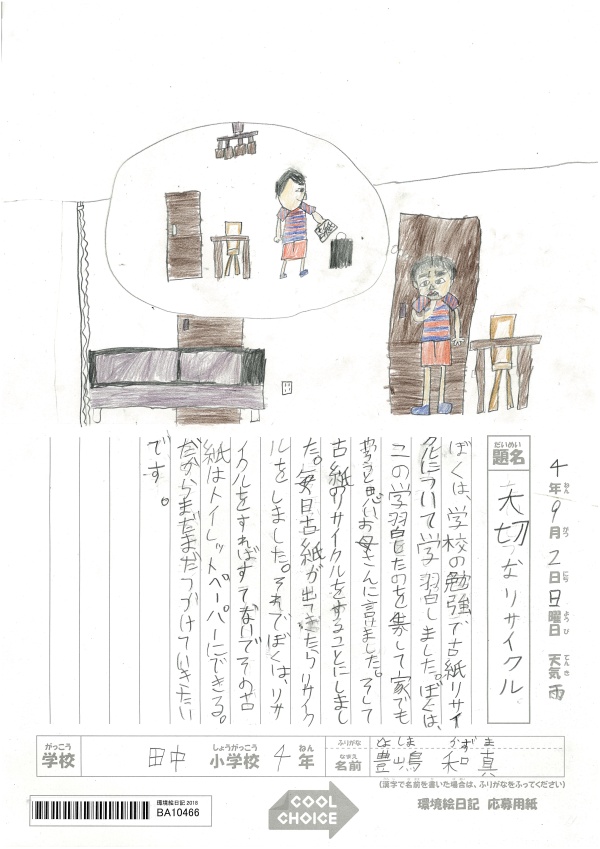 4年9月2日日曜日 天気雨
ねん がつ にち ようび てんき
だいめい
題名 大切なリサイクル
ぼくは、学校の勉強で古紙リサイ
クルについて学習しました。ぼくは、
この学習したのを集して家でも
やろうと思いお母さんに言けました。そして
古紙のリサイクルをすることにしまし
た。毎日古紙が出てきたらリサイク
ルをしました。それでぼくは、リサ
イクルをすればすてないでその古
紙はトイレットペーパーにできる。
だからまだまだつづけていきたい
です。
がっこう しょうがっこう ねん ふりがな としま かずま
学校 田中 小学校 4年 なまえ 名前 豊嶋 和真
(漢字で名前を書いた場合は、ふりがなをふってください)
環境絵日記 2018
BA10466
COOL
CHOICE
環境絵日記 応募用紙